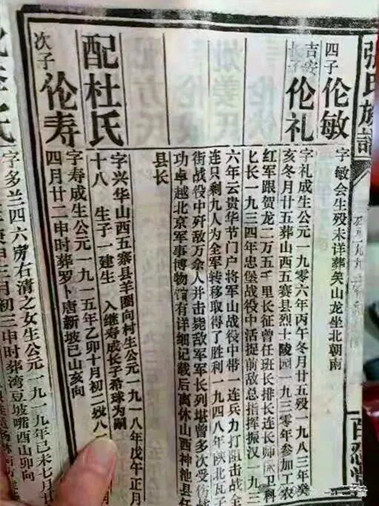 張氏族譜
百忍堂
四子 伦敏 字敏会生殁未详葬荚山龙坐北朝南
吉安 长子 伦礼
字礼成生公元一九〇六年丙午冬月廿五殁一九八三年癸
亥冬月廿五葬山西五寨县烈士陵园一九三〇年参加工农
红军跟贺龙二万五千里长征曾任班长排长连长师长卫科
匕长一九三四年忠堡战役中活捉前敌总指挥振汉一九三
六年云贵华节门户将军山战役中带一连兵力打阻击战全
连只剩九人为全军转移取得了胜利一九四八年陕北瓦子
街战役中歼敌万余人并击毙敌军军长列堪曾多次受
功卓越北京军事博物馆有详细记载后离休山西神池县任
县长
配杜氏 字兴华山西五寨县羊圈向村生公元一九一八年戊午正月
十八 生子一建生 入继寿成长子希球为嗣
次子 伦寿 字寿成生公元一九一五年乙卯十月初二殁八
四月廿二申时葬罗卜唐新坡巳山亥向
字多兰四六房右清之女生公元一九一九年己未七月
庚申三月初三申时葬湾豆坡嘴酉山卯向